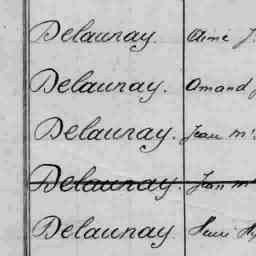 Delaunay. Aimé J.
Delaunay. Amand
Delaunay. Jean M
Delaunay. Jean M
Delaunay. Henri